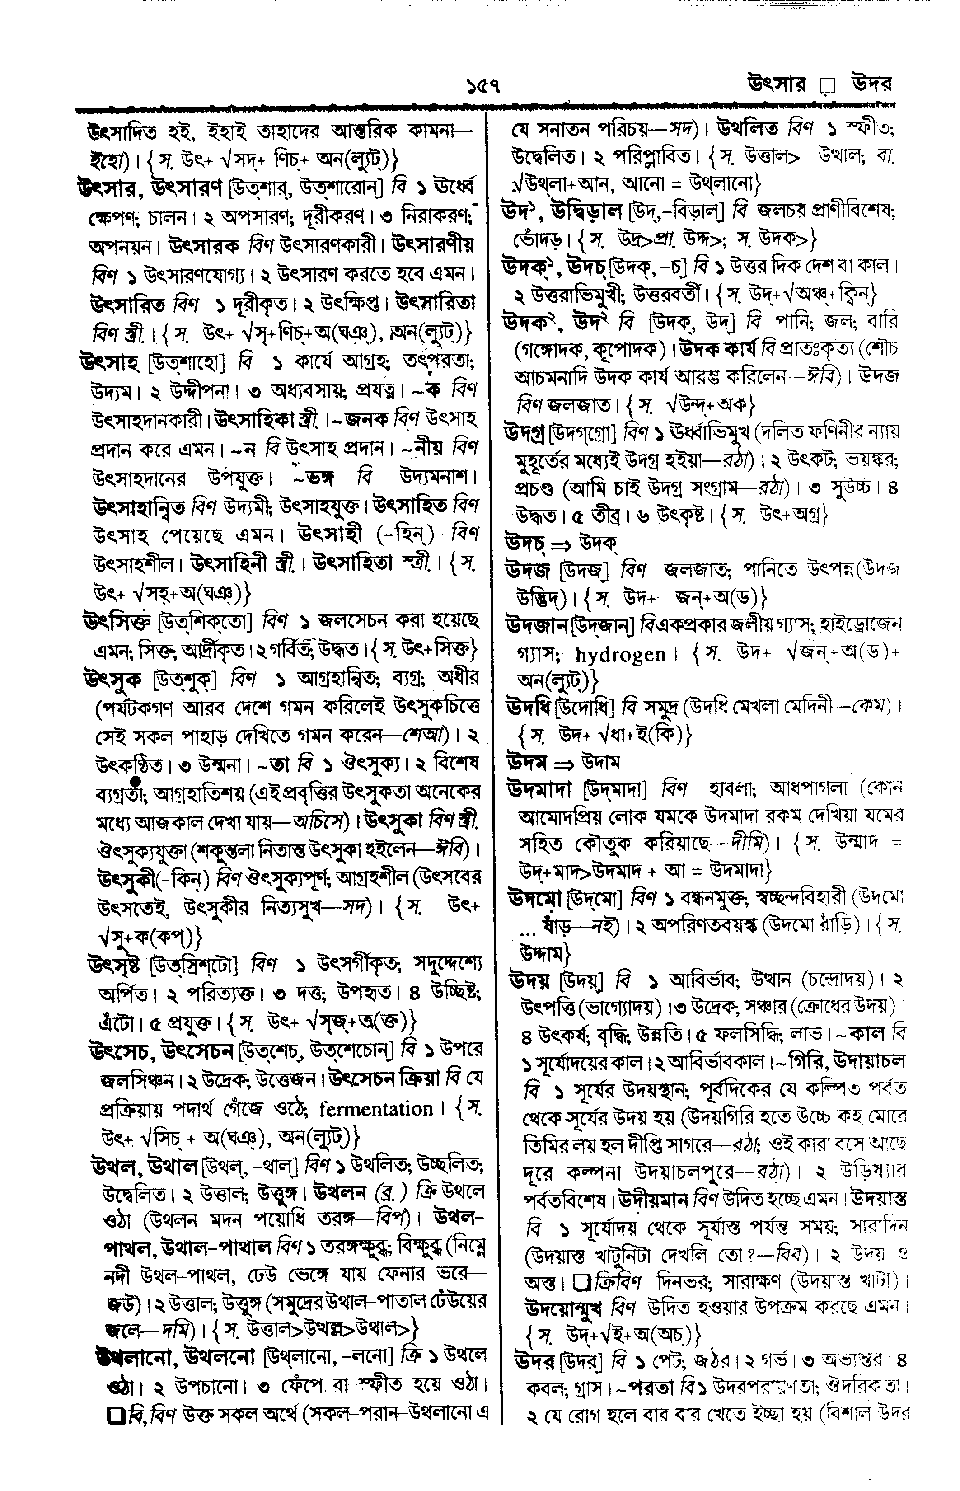 ১৫৭
উৎসার □ উদর
উৎসাদিত হই, ইহাই তাহাদের আন্তরিক কামনা—
ইহো)। {স. উৎ+ √সদ্+ ণিচ্+ অন(ল্যুট)}
উৎসার, উৎসারণ [উত্‌শার্, উত্‌শারোন্] বি ১ ঊর্ধ্বে
ক্ষেপণ; চালন। ২ অপসারণ; দূরীকরণ। ৩ নিরাকরণ;
অপনয়ন। উৎসারক বিণ উৎসারণকারী। উৎসারণীয়
বিণ ১ উৎসারণযোগ্য। ২ উৎসারণ করতে হবে এমন।
উৎসারিত বিণ ১ দূরীকৃত। ২ উৎক্ষিপ্ত। উৎসারিতা
বিণ স্ত্রী.। {স. উৎ+ √সৃ+ণিচ্+অ(ঘঞ্), অন(ল্যুট)}
উৎসাহ [উত্‌শাহো] বি ১ কার্যে আগ্রহ; তৎপরতা;
উদ্যম। ২ উদ্দীপনা। ৩ অধ্যবসায়; প্রযত্ন। ~ক বিণ
উৎসাহদানকারী। উৎসাহিকা স্ত্রী.। ~জনক বিণ উৎসাহ
প্রদান করে এমন। ~ন বি উৎসাহ প্রদান। ~নীয় বিণ
উৎসাহদানের উপযুক্ত। ~ভঙ্গ বি উদ্যমনাশ।
উৎসাহান্বিত বিণ উদ্যমী; উৎসাহযুক্ত। উৎসাহিত বিণ
উৎসাহ পেয়েছে এমন। উৎসাহী (-হিন্) বিণ
উৎসাহশীল। উৎসাহিনী স্ত্রী.। উৎসাহিতা স্ত্রী.। {স.
উৎ+ √সহ্+অ(ঘঞ্)}
উৎসিক্ত [উত্‌শিক্‌তো] বিণ ১ জলসেচন করা হয়েছে
এমন; সিক্ত; আর্দ্রীকৃত। ২ গর্বিত; উদ্ধত। {স. উৎ+সিক্ত}
উৎসুক [উত্‌শুক্] বিণ ১ আগ্রহান্বিত; ব্যগ্র; অধীর
(পর্যটকগণ আরব দেশে গমন করিলেই উৎসুকচিত্তে
সেই সকল পাহাড় দেখিতে গমন করেন—শেআ)। ২
উৎকণ্ঠিত। ৩ উন্মনা। ~তা বি ১ ঔৎসুক্য। ২ বিশেষ
ব্যগ্রতা; আগ্রহাতিশয় (এই প্রবৃত্তির উৎসুকতা অনেকের
মধ্যে আজকাল দেখা যায়—অচিসে)। উৎসুকা বিণ স্ত্রী.
ঔৎসুক্যযুক্তা (শকুন্তলা নিতান্ত উৎসুকা হইলেন—ঈবি)।
উৎসুকী(-কিন্) বিণ ঔৎসুক্যপূর্ণ; আগ্রহশীল (উৎসবের
উৎসতেই, উৎসুকীর নিত্যসুখ—সদ)। {স. উৎ+
√সু+ক(কপ্)}
উৎসৃষ্ট [উত্‌স্রিশ্‌টো] বিণ ১ উৎসর্গীকৃত; সদুদ্দেশ্যে
অর্পিত। ২ পরিত্যক্ত। ৩ দত্ত; উপহৃত। ৪ উচ্ছিষ্ট;
এঁটো। ৫ প্রযুক্ত। {স. উৎ+ √সৃজ্+ত(ক্ত)}
উৎসেচ, উৎসেচন [উত্‌শেচ্, উত্‌শেচোন্] বি ১ উপরে
জলসিঞ্চন। ২ উদ্রেক; উত্তেজন। উৎসেচন ক্রিয়া বি যে
প্রক্রিয়ায় পদার্থ গেঁজে ওঠে; fermentation। {স.
উৎ+ √সিচ্ + অ(ঘঞ্), অন(ল্যুট)}
উথল, উথাল [উথল্, -থাল্] বিণ ১ উথলিত; উচ্ছলিত;
উদ্বেলিত। ২ উত্তাল; উত্তুঙ্গ। উথলন (ব্র.) ক্রি উথলে
ওঠা (উথলন মদন পয়োধি তরঙ্গ—বিপ)। উথল-
পাথল, উথাল-পাথাল বিণ ১ তরঙ্গক্ষুব্ধ; বিক্ষুব্ধ (নিম্নে
নদী উথল-পাথল, ঢেউ ভেঙ্গে যায় ফেনার ভরে—
জউ)। ২ উত্তাল; উত্তুঙ্গ (সমুদ্রের উথাল-পাতাল ঢেউয়ের
জলে—দমি)। {স. উত্তাল>উথল্ল>উথাল>}
উথলানো, উথলনো [উথ্‌লানো, -লনো] ক্রি ১ উথলে
ওঠা। ২ উপচানো। ৩ ফেঁপে বা স্ফীত হয়ে ওঠা।
□ বি, বিণ উক্ত সকল অর্থে (সকল-পরান-উথলানো এ
যে সনাতন পরিচয়—সদ)। উথলিত বিণ ১ স্ফীত;
উদ্বেলিত। ২ পরিপ্লাবিত। {স. উত্তাল> উথাল; বা.
√উথলা+আন, আনো = উথলানো}
উদ¹, উদ্বিড়াল [উদ্,-বিড়াল্] বি জলচর প্রাণীবিশেষ;
ভোঁদড়। {স. উদ্র>প্রা. উদ্দ>; স. উদক>}
উদক¹, উদচ [উদক্, -চ্] বি ১ উত্তর দিক দেশ বা কাল।
২ উত্তরাভিমুখী; উত্তরবর্তী। {স. উদ্+√অঞ্চ্+ক্বিন্}
উদক², উদ² বি [উদক্, উদ্] বি পানি; জল; বারি
(গঙ্গোদক, কূপোদক)। উদক কার্য বি প্রাতঃকৃত্য (শৌচ
আচমনাদি উদক কার্য আরম্ভ করিলেন—ঈবি)। উদজ
বিণ জলজাত। {স. √উন্দ্+অক}
উদগ্র [উদগ্‌গ্রো] বিণ ১ ঊর্ধ্বাভিমুখ (দলিত ফণিনীর ন্যায়
মুহূর্তের মধ্যেই উদগ্র হইয়া—রঠা)। ২ উৎকট; ভয়ঙ্কর;
প্রচণ্ড (আমি চাই উদগ্র সংগ্রাম—রঠা)। ৩ সুউচ্চ। ৪
উদ্ধত। ৫ তীব্র। ৬ উৎকৃষ্ট। {স. উৎ+অগ্র}
উদচ ⇒ উদক্
উদজ [উদজ্] বিণ জলজাত; পানিতে উৎপন্ন(উদজ
উদ্ভিদ)। {স. উদ+ জন্+অ(ড)}
উদজান [উদ্‌জান্] বি একপ্রকার জলীয় গ্যাস; হাইড্রোজেন
গ্যাস; hydrogen। {স. উদ+ √জন্+অ(ড)+
অন(ল্যুট)}
উদধি [উদোধি] বি সমুদ্র (উদধি মেখলা মেদিনী—কেম)।
{স. উদ+ √ধা+ই(কি)}
উদম ⇒ উদাম
উদমাদা [উদ্‌মাদা] বিণ হাবলা; আধপাগলা (কোন
আমোদপ্রিয় লোক যমকে উদমাদা রকম দেখিয়া যমের
সহিত কৌতুক করিয়াছে—দীমি)। {স. উন্মাদ =
উদ্+মাদ>উদমাদ + আ = উদমাদা}
উদমো [উদ্‌মো] বিণ ১ বন্ধনমুক্ত; স্বচ্ছন্দবিহারী (উদমো
... ষাঁড়—নই)। ২ অপরিণতবয়স্ক (উদমো রাঁড়ি)। {স.
উদ্দাম}
উদয় [উদয়্] বি ১ আবির্ভাব; উত্থান (চন্দ্রোদয়)। ২
উৎপত্তি (ভাগ্যোদয়)। ৩ উদ্রেক; সঞ্চার (ক্রোধের উদয়)
৪ উৎকর্ষ, বৃদ্ধি; উন্নতি। ৫ ফলসিদ্ধি; লাভ। ~কাল বি
১ সূর্যোদয়ের কাল। ২ আবির্ভাবকাল। ~গিরি, উদয়াচল
বি ১ সূর্যের উদয়স্থান; পূর্বদিকের যে কল্পিত পর্বত
থেকে সূর্যের উদয় হয় (উদয়গিরি হতে উচ্চে কহ মোরে
তিমির লয় হল দীপ্তি সাগরে—রঠা; ওই কারা বসে আছে
দূরে কল্পনা উদয়াচলপুরে—রঠা)। ২ উড়িষ্যার
পর্বতবিশেষ। উদীয়মান বিণ উদিত হচ্ছে এমন। উদয়াস্ত
বি ১ সূর্যোদয় থেকে সূর্যাস্ত পর্যন্ত সময়; সারাদিন
(উদয়াস্ত খাটুনিটা দেখলি তো?—বির)। ২ উদয় ও
অস্ত। □ ক্রিবিণ দিনভর; সারাক্ষণ (উদয়াস্ত খাটা)।
উদয়োন্মুখ বিণ উদিত হওয়ার উপক্রম করছে এমন।
{স. উদ্+√ই+অ(অচ্)}
উদর [উদর্] বি ১ পেট; জঠর। ২ গর্ভ। ৩ অভ্যন্তর ৪
কবল; গ্রাস। ~পরতা বি ১ উদরপরায়ণতা; ঔদরিকতা।
২ যে রোগ হলে বার বার খেতে ইচ্ছা হয় (বিশাল উদর